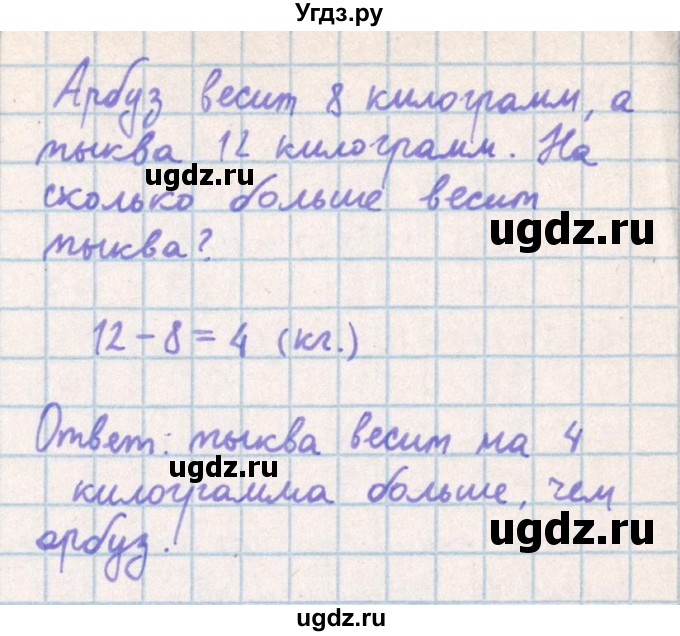 Угдз.ру
Арбуз весит 8 килограмм, а
тыква 12 килограмм. На
ugdz.ru
сколько больше весит
ugdz.ru
тыква?
12 - 8 = 4 (кг.)
Ответ: тыква весит на 4
ugdz.ru
килограмма больше, чем
ugdz.ru
арбуз.
ugdz.ru